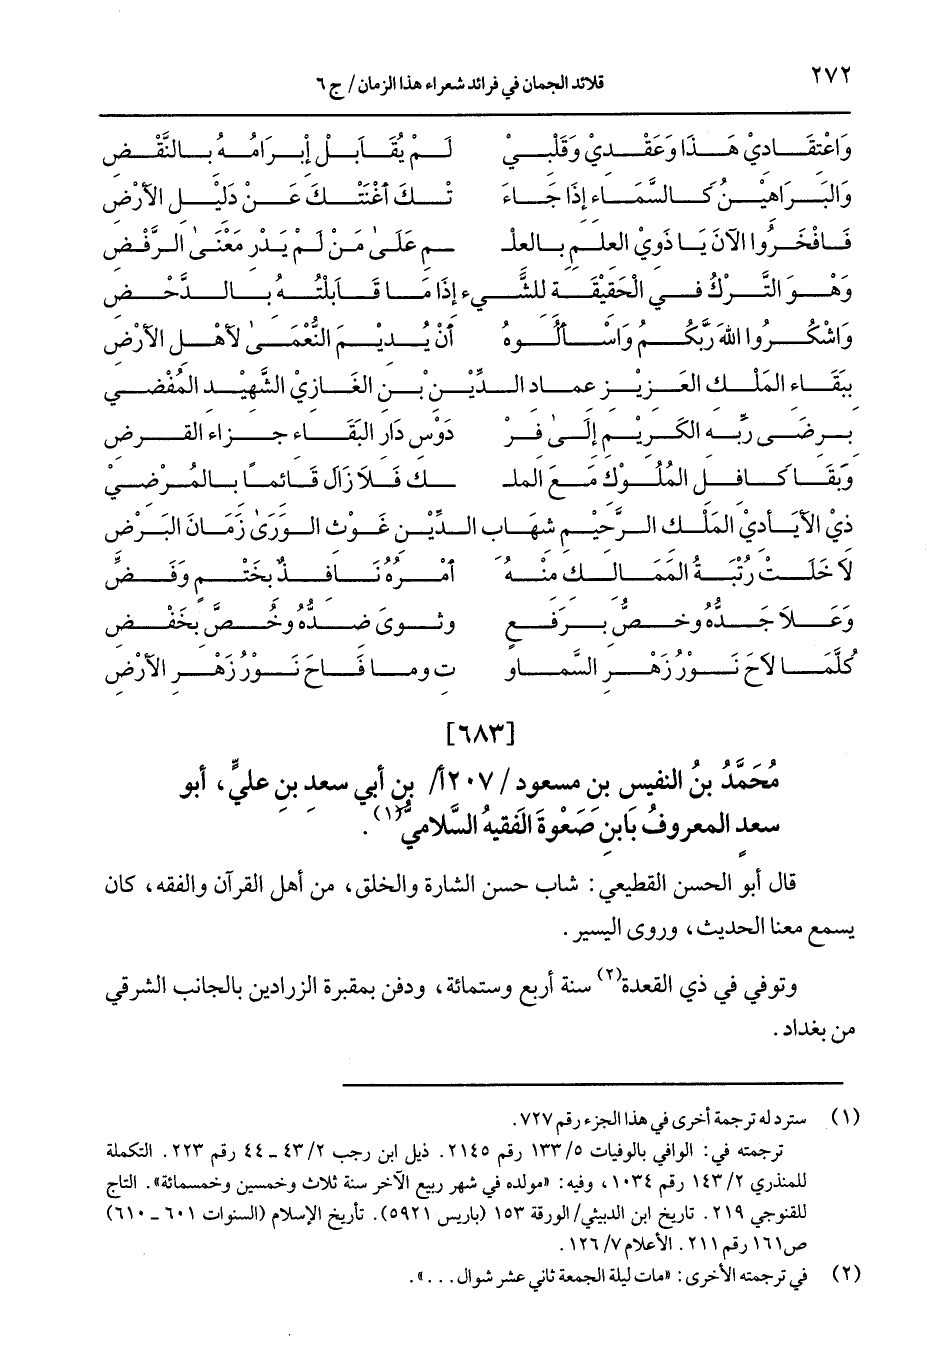 ٢٧٢ قلائد الجمان في فرائد شعراء هذا الزمان/ ج ٦
وَاعْتقَادِيْ هَذَا وَعَقْدِيْ وَقَلْبِيْ لَمْ يُقَابَلْ إِبرَامُهُ بِالنَّقْضِ
وَالبَرَاهِيْنُ كَالسَّمَاءِ إِذَا جَاءَ تْكَ أَغْنَتْكَ عَنْ دَلِيْلِ الأَرْضِ
فَافْخَرُوا الآنَ يَا ذَوِيْ العلمِ بِالعلْـ ـمِ عَلَىٰ مَنْ لَمْ يَدْرِ مَعْنَىٰ الرَّفْضِ
وَهْوَ التَّرْكُ فِي الْحَقِيْقَةِ للشَّيءِ إِذَا مَا قَابَلْتُهُ بِالدَّحْضِ
وَاشْكُرُوا اللهَ رَبَّكُمْ وَاسْأَلُوهُ أَنْ يُدِيْمَ النُّعْمَىٰ لأَهْلِ الأَرْضِ
بِبَقَاءِ المَلْكِ العَزِيْزِ عمادِ الدِّيْنِ بْنِ الغَازِيْ الشَّهِيْدِ المُفْضِي
بِرِضَى رَبِّهِ الكَرِيْمِ إِلَىٰ فِرْ دَوْسِ دَارِ البَقَاءِ جزاءَ القَرضِ
وَبَقَا كَافِلِ المُلُوْكِ مَعَ المِلـ ـكِ فَلاَ زَالَ قَائماً بِالمُرْضِيْ
ذِيْ الأَيَادِيْ المَلْكِ الرَّحِيْمِ شهَابِ الدِّيْنِ غَوْثِ الوَرَىٰ زَمَانَ البَرْضِ
لاَ خَلَتْ رُتْبَةُ المَمَالِكِ مِنْهُ أَمْرُهُ نَافِذٌ بِخَتْمٍ وَفَضِّ
وَعَلاَ جَدُّهُ وخصَّ بِرَفْعٍ وثوى ضدُّهُ وخُصَّ بِخَفْضِ
كُلَّمَا لاَحَ نَوْرُ زَهْرِ السَّماو تِ وما فَاحَ نَوْرُ زَهْرِ الأَرْضِ
[٦٨٣]
مُحَمَّدُ بنُ النفيسِ بنِ مسعود /٢٠٧أ/ بنِ أبي سعدِ بنِ عليٍّ، أبو
سعدٍ المعروفُ بَابنِ صَعْوَةَ الفَقيهُ السَّلاميُّ(١).
قال أبو الحسن القطيعي: شاب حسن الشارة والخلق، من أهل القرآن والفقه، كان
يسمع معنا الحديث، وروى اليسير.
وتوفي في ذي القعدة(٢) سنة أربع وستمائة، ودفن بمقبرة الزرادين بالجانب الشرقي
من بغداد.
(١) سترد له ترجمة أخرى في هذا الجزء رقم ٧٢٧.
ترجمته في: الوافي بالوفيات ٥/ ١٣٣ رقم ٢١٤٥. ذيل ابن رجب ٢/ ٤٣ ـ ٤٤ رقم ٢٢٣. التكملة
للمنذري ٢/ ١٤٣ رقم ١٠٣٤، وفيه: «مولده في شهر ربيع الآخر سنة ثلاث وخمسين وخمسمائة». التاج
للقنوجي ٢١٩. تاريخ ابن الدبيثي/ الورقة ١٥٣ (باريس ٥٩٢١). تأريخ الإسلام (السنوات ٦٠١ ـ ٦١٠)
ص١٦١ رقم ٢١١. الأعلام ٧/ ١٢٦.
(٢) في ترجمته الأخرى: «مات ليلة الجمعة ثاني عشر شوال...».